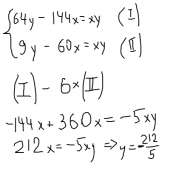 {64y - 144x = xy (I)
{9y - 60x = xy (II)
(I) - 6x(II)
-144x + 360x = -5xy
212x = -5xy => y = -212/5